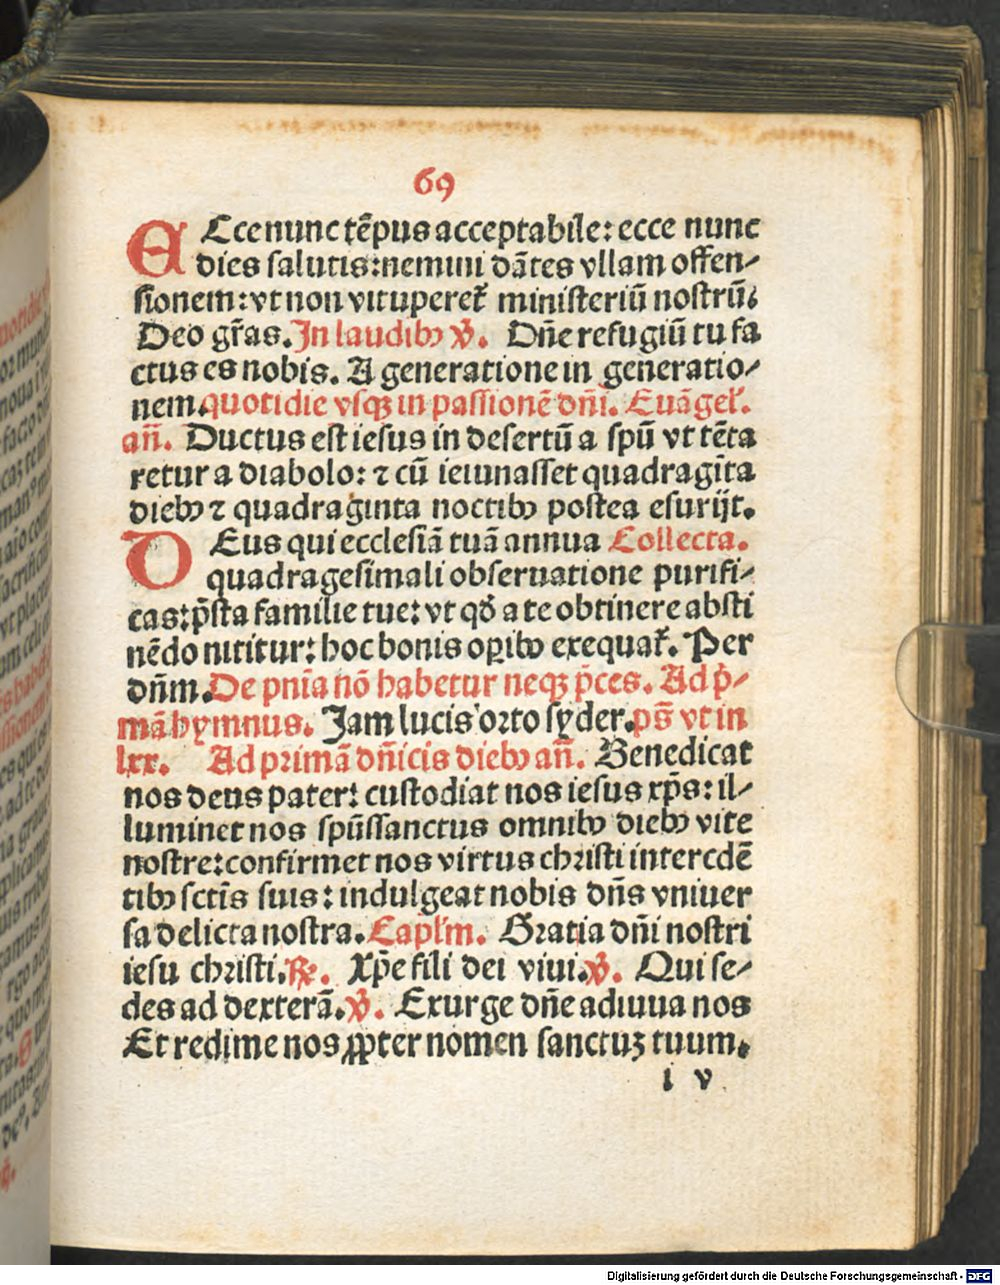 69
ECce nunc tēpus acceptabile: ecce nunc
dies salutis: nemini dātes vllam offen⸗
sionem: vt non vituperet᷑ ministeriū nostrū.
Deo gr̄as. In laudibꝰ ℣. Dn̄e refugiū tu fa
ctus es nobis. A generatione in generatio⸗
nem. quotidie vsqꝫ in passionē dn̄i. Euāgel̓.
an̄. Ductus est iesus in desertū a spū vt tēta
retur a diabolo: ⁊ cū ieiunasset quadragīta
diebꝰ ⁊ quadraginta noctibꝰ postea esurijt.
DEus qui ecclesiā tuā annua Collecta.
quadragesimali obseruatione purifi⸗
cas: p̄sta familie tue: vt qđ a te obtinere absti
nēdo nititur: hoc bonis oꝑibꝰ exequat᷑. Per
dn̄m. De pn̄ia nō habetur neqꝫ p̄ces. Ad p̄⸗
mā hymnus. Jam lucis orto syder. ps̄ vt in
lxx. Ad primā dn̄icis diebꝰ an̄. Benedicat
nos deus pater: custodiat nos iesus xp̄s: il⸗
luminet nos spūssanctus omnibꝰ diebꝰ vite
nostre: confirmet nos virtus christi intercdē
tibꝰ sctīs suis: indulgeat nobis dn̄s vniuer
sa delicta nostra. Capl̓m. Gratia dn̄i nostri
iesu christi. ℟. Xp̄e fili dei viui. ℣. Qui se⸗
des ad dexterā. ℣. Exurge dn̄e adiuua nos
Et redime nos ꝓpter nomen sanctuꝫ tuum.
i v
Digitalisierung gefördert durch die Deutsche Forschungsgemeinschaft - DFG